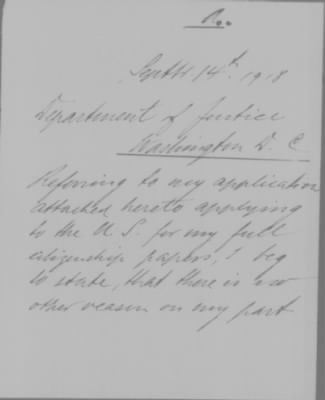 Septbr. 14th 1918
Department of Justice
Washington D. C
Referring to my application
attached hereto applying
to the U. S. for my full
citizenship papers, I beg
to state, that there is no
other reason on my part